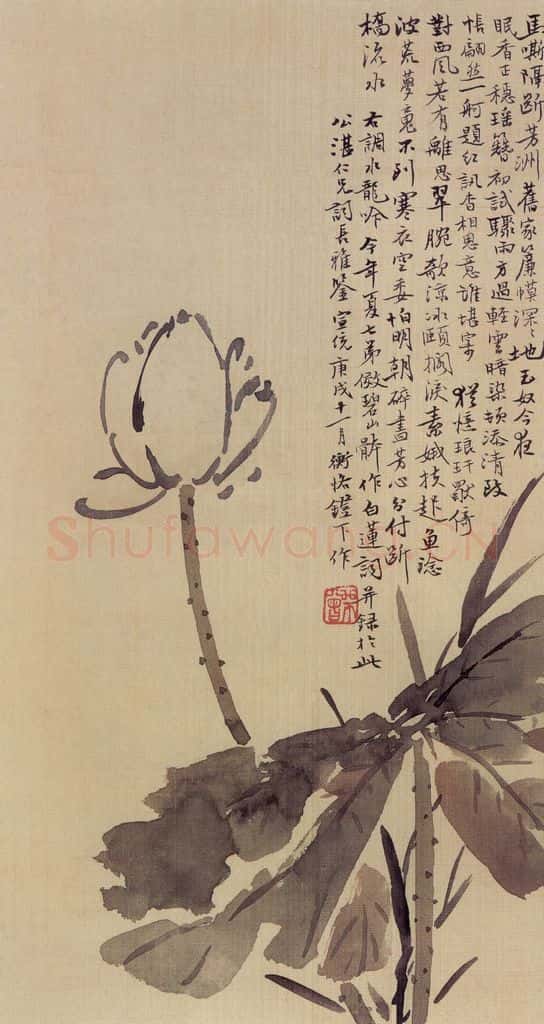 馬嘶隔斷芳洲舊家簾幙深〻地玉奴今
眠香正穩瑤簪初試驟雨方過輕雲暗染頓添清致
悵翩然一舸題紅訊杳相思意誰堪寄 猶憶琅玕倚
對西風若有離思翠腕欹涼冰頤搵淚素娥扶起魚
波荒夢魂不到寒衣空委怕明朝碎盡芳心分付斷
橋流水 右調水龍吟今年夏七弟倣碧山體作白蓮詞并録於此
公湛仁兄詞長雅鑒 宣統庚戌十一月衡恪鐙下作
Shufawang.CN